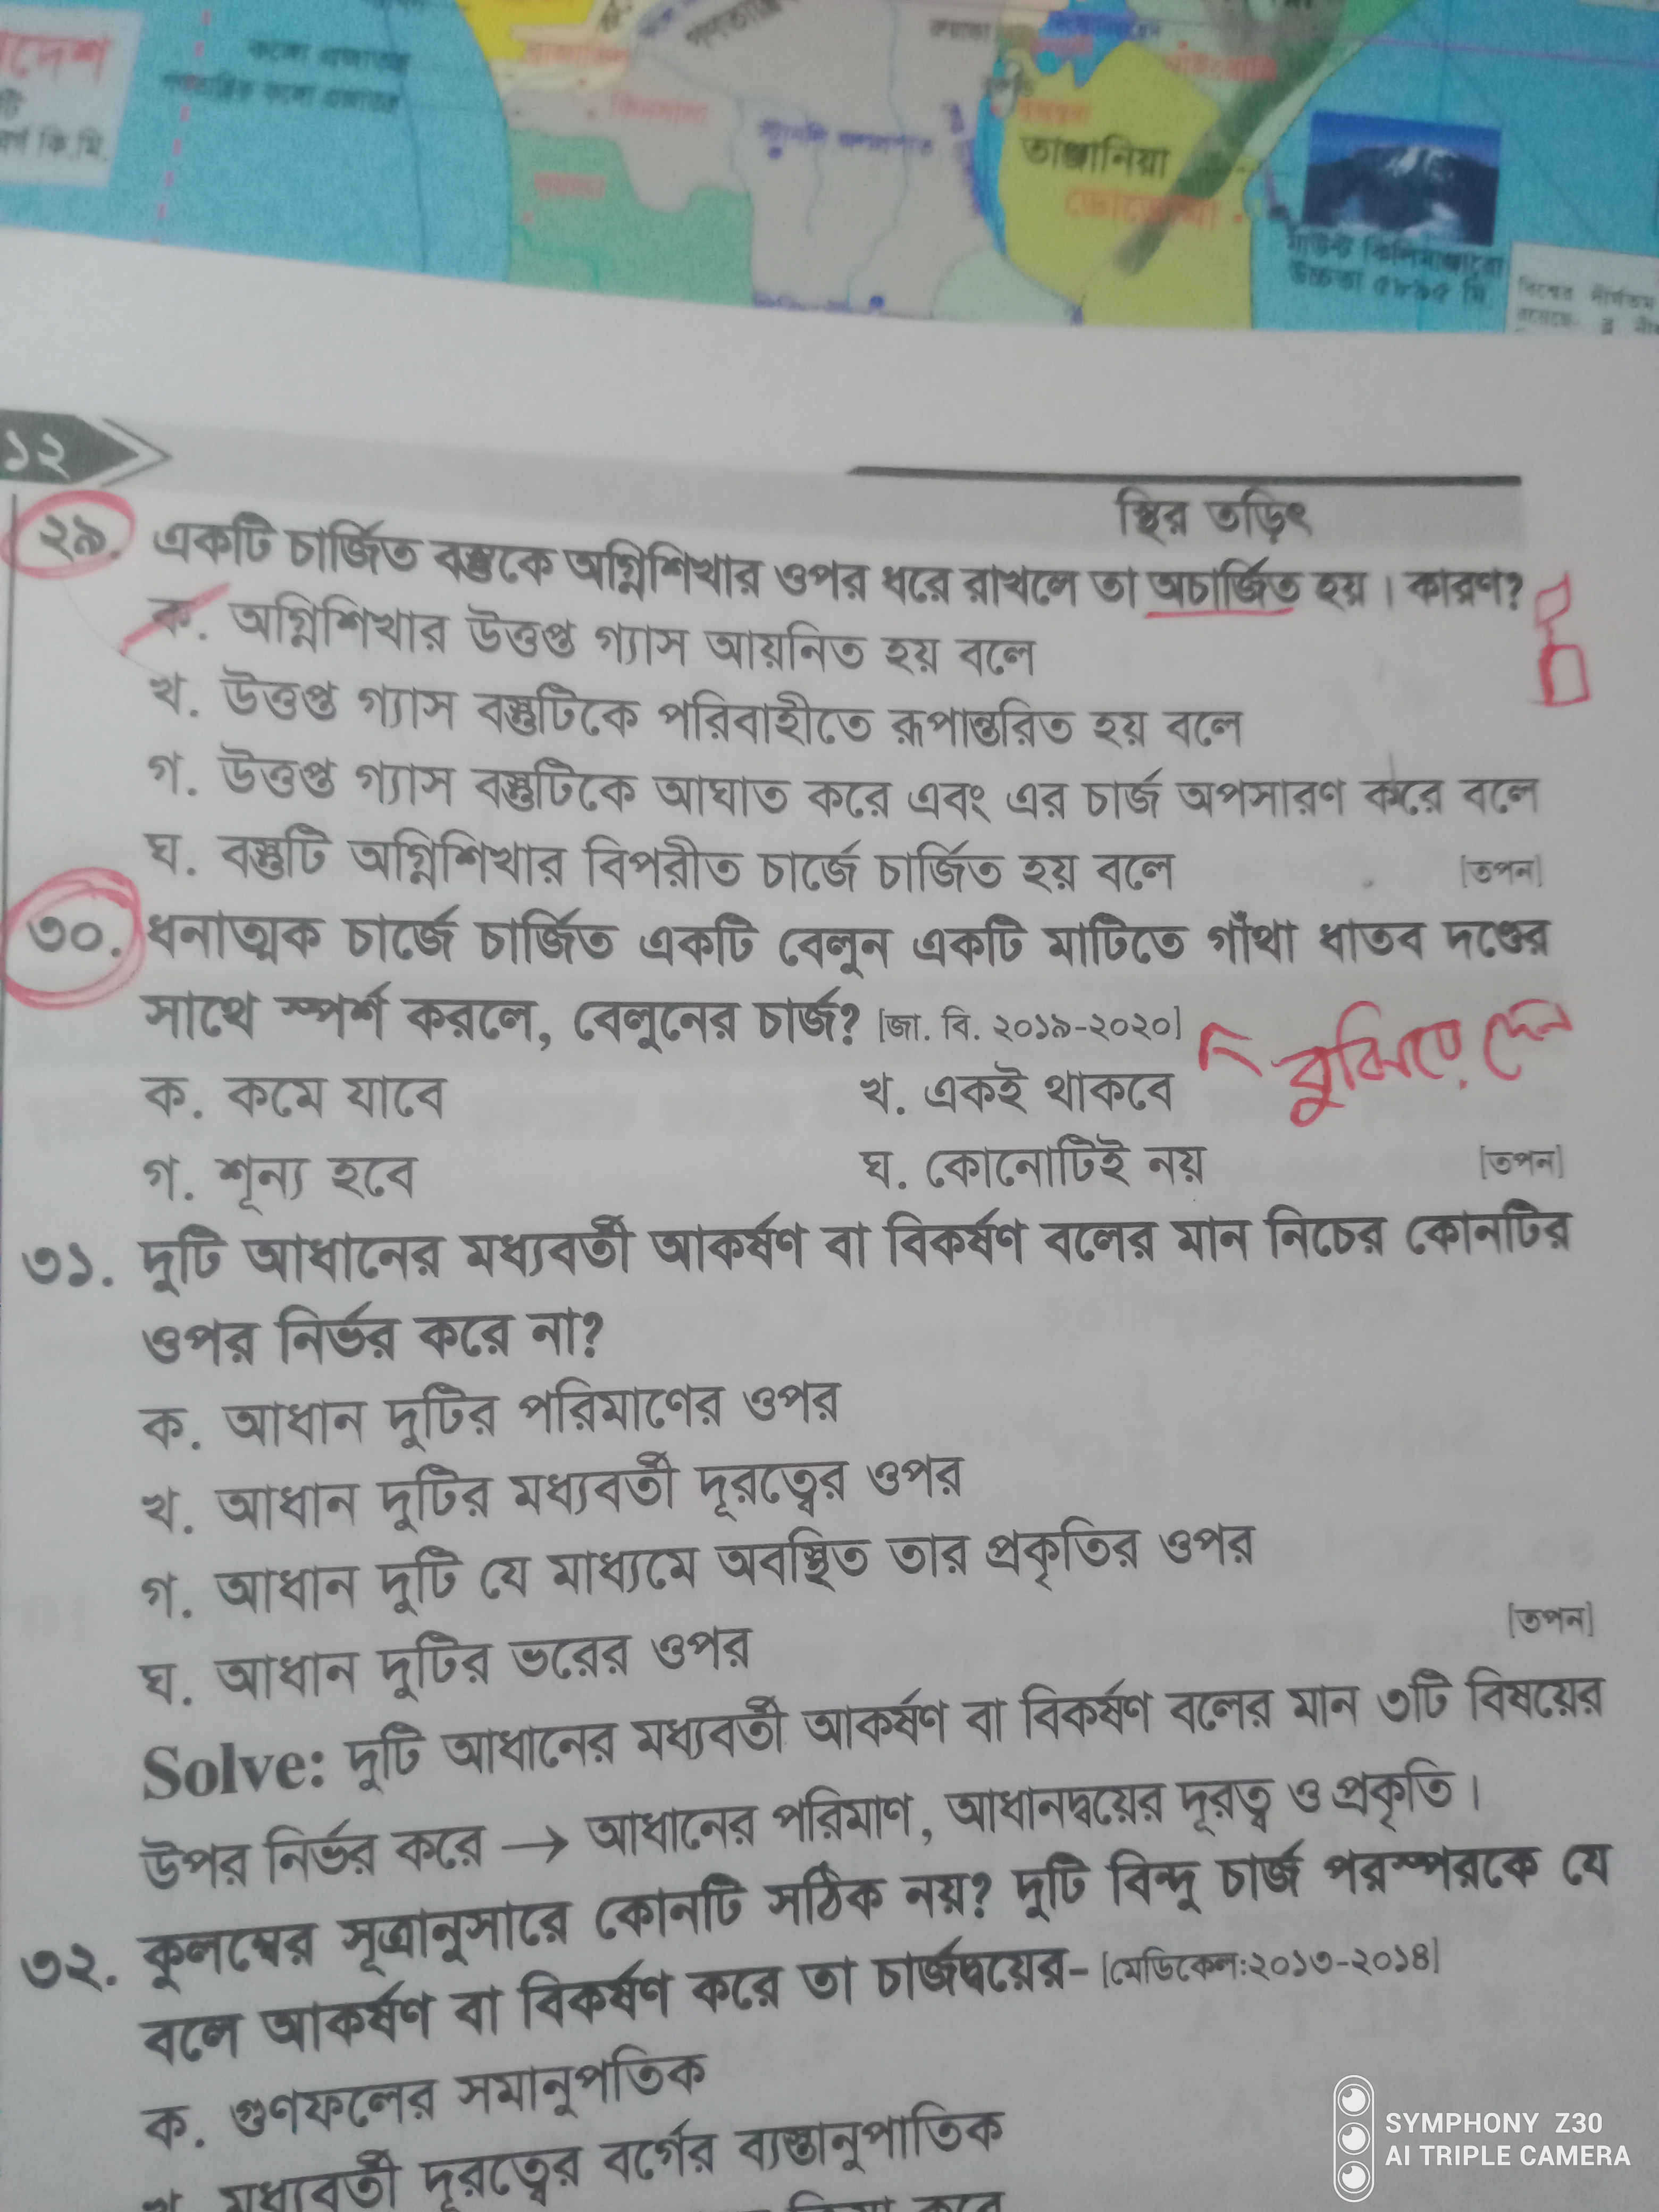 তাঞ্জানিয়া
মাউন্ট কিলিমাঞ্জারো
উচ্চতা ৫৮৯৫ মি.
১২
স্থির তড়িৎ
২৯. একটি চার্জিত বস্তুকে অগ্নিশিখার ওপর ধরে রাখলে তা অচার্জিত হয়। কারণ?
ক. অগ্নিশিখার উত্তপ্ত গ্যাস আয়নিত হয় বলে
খ. উত্তপ্ত গ্যাস বস্তুটিকে পরিবাহীতে রূপান্তরিত হয় বলে
গ. উত্তপ্ত গ্যাস বস্তুটিকে আঘাত করে এবং এর চার্জ অপসারণ করে বলে
ঘ. বস্তুটি অগ্নিশিখার বিপরীত চার্জে চার্জিত হয় বলে [তপন]
৩০. ধনাত্মক চার্জে চার্জিত একটি বেলুন একটি মাটিতে গাঁথা ধাতব দণ্ডের
সাথে স্পর্শ করলে, বেলুনের চার্জ? [জা. বি. ২০১৯-২০২০]
বুঝিয়ে দেন
ক. কমে যাবে খ. একই থাকবে
গ. শূন্য হবে ঘ. কোনোটিই নয় [তপন]
৩১. দুটি আধানের মধ্যবর্তী আকর্ষণ বা বিকর্ষণ বলের মান নিচের কোনটির
ওপর নির্ভর করে না?
ক. আধান দুটির পরিমাণের ওপর
খ. আধান দুটির মধ্যবর্তী দূরত্বের ওপর
গ. আধান দুটি যে মাধ্যমে অবস্থিত তার প্রকৃতির ওপর
ঘ. আধান দুটির ভরের ওপর [তপন]
Solve: দুটি আধানের মধ্যবর্তী আকর্ষণ বা বিকর্ষণ বলের মান ৩টি বিষয়ের
উপর নির্ভর করে → আধানের পরিমাণ, আধানদ্বয়ের দূরত্ব ও প্রকৃতি।
৩২. কুলম্বের সূত্রানুসারে কোনটি সঠিক নয়? দুটি বিন্দু চার্জ পরস্পরকে যে
বলে আকর্ষণ বা বিকর্ষণ করে তা চার্জদ্বয়ের- [মেডিকেল:২০১৩-২০১৪]
ক. গুণফলের সমানুপতিক
খ. মধ্যবর্তী দূরত্বের বর্গের ব্যস্তানুপাতিক
SYMPHONY Z30
AI TRIPLE CAMERA